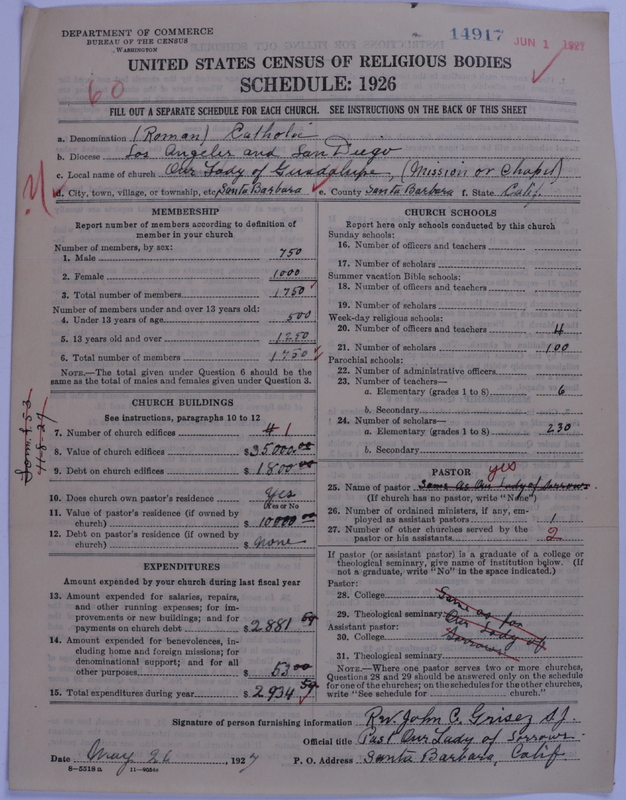 DEPARTMENT OF COMMERCE
BUREAU OF THE CENSUS
WASHINGTON
14917
JUN 1 1927
UNITED STATES CENSUS OF RELIGIOUS BODIES
SCHEDULE: 1926
60
FILL OUT A SEPARATE SCHEDULE FOR EACH CHURCH. SEE INSTRUCTIONS ON THE BACK OF THIS SHEET
a. Denomination (Roman) Catholic
b. Diocese Los Angeles and San Diego
c. Local name of church Our Lady of Guadalupe, (Mission or Chapel)
d. City, town, village, or township, etc. Santa Barbara e. County Santa Barbara f. State Calif.
MEMBERSHIP
Report number of members according to definition of
member in your church
Number of members, by sex:
1. Male 750
2. Female 1000
3. Total number of members 1750
Number of members under and over 13 years old:
4. Under 13 years of age 500
5. 13 years old and over 1250
6. Total number of members 1750
NOTE.—The total given under Question 6 should be the
same as the total of males and females given under Question 3.
CHURCH BUILDINGS
See instructions, paragraphs 10 to 12
7. Number of church edifices 4 1
8. Value of church edifices $35000.00
9. Debt on church edifices $1800.00
10. Does church own pastor's residence Yes
(Yes or No)
11. Value of pastor's residence (if owned by
church) $10000.00
12. Debt on pastor's residence (if owned by
church) $none
EXPENDITURES
Amount expended by your church during last fiscal year
13. Amount expended for salaries, repairs,
and other running expenses; for im-
provements or new buildings; and for
payments on church debt $2881
14. Amount expended for benevolences, in-
cluding home and foreign missions; for
denominational support; and for all
other purposes $53.00
15. Total expenditures during year $2934
4-8-27
CHURCH SCHOOLS
Report here only schools conducted by this church
Sunday schools:
16. Number of officers and teachers
17. Number of scholars
Summer vacation Bible schools:
18. Number of officers and teachers
19. Number of scholars
Week-day religious schools:
20. Number of officers and teachers 4
21. Number of scholars 100
Parochial schools:
22. Number of administrative officers
23. Number of teachers—
a. Elementary (grades 1 to 8) 6
b. Secondary
24. Number of scholars—
a. Elementary (grades 1 to 8) 230
b. Secondary
PASTOR
yes
25. Name of pastor Same as Our Lady of Sorrows
(If church has no pastor, write "None")
26. Number of ordained ministers, if any, em-
ployed as assistant pastors 1
27. Number of other churches served by the
pastor or his assistants 2
If pastor (or assistant pastor) is a graduate of a college or
theological seminary, give name of institution below. (If
not a graduate, write "No" in the space indicated.)
Pastor:
28. College Same as for
29. Theological seminary Our Lady of
Assistant pastor:
30. College Sorrows
31. Theological seminary
NOTE.—Where one pastor serves two or more churches,
Questions 28 and 29 should be answered only on the schedule
for one of the churches; on the schedules for the other churches,
write "See schedule for church."
Signature of person furnishing information Rev. John C. Grisez S.J.
Official title Past. Our Lady of Sorrows
Date May 26, 1927 P. O. Address Santa Barbara, Calif.
8-5518 a 11-9054